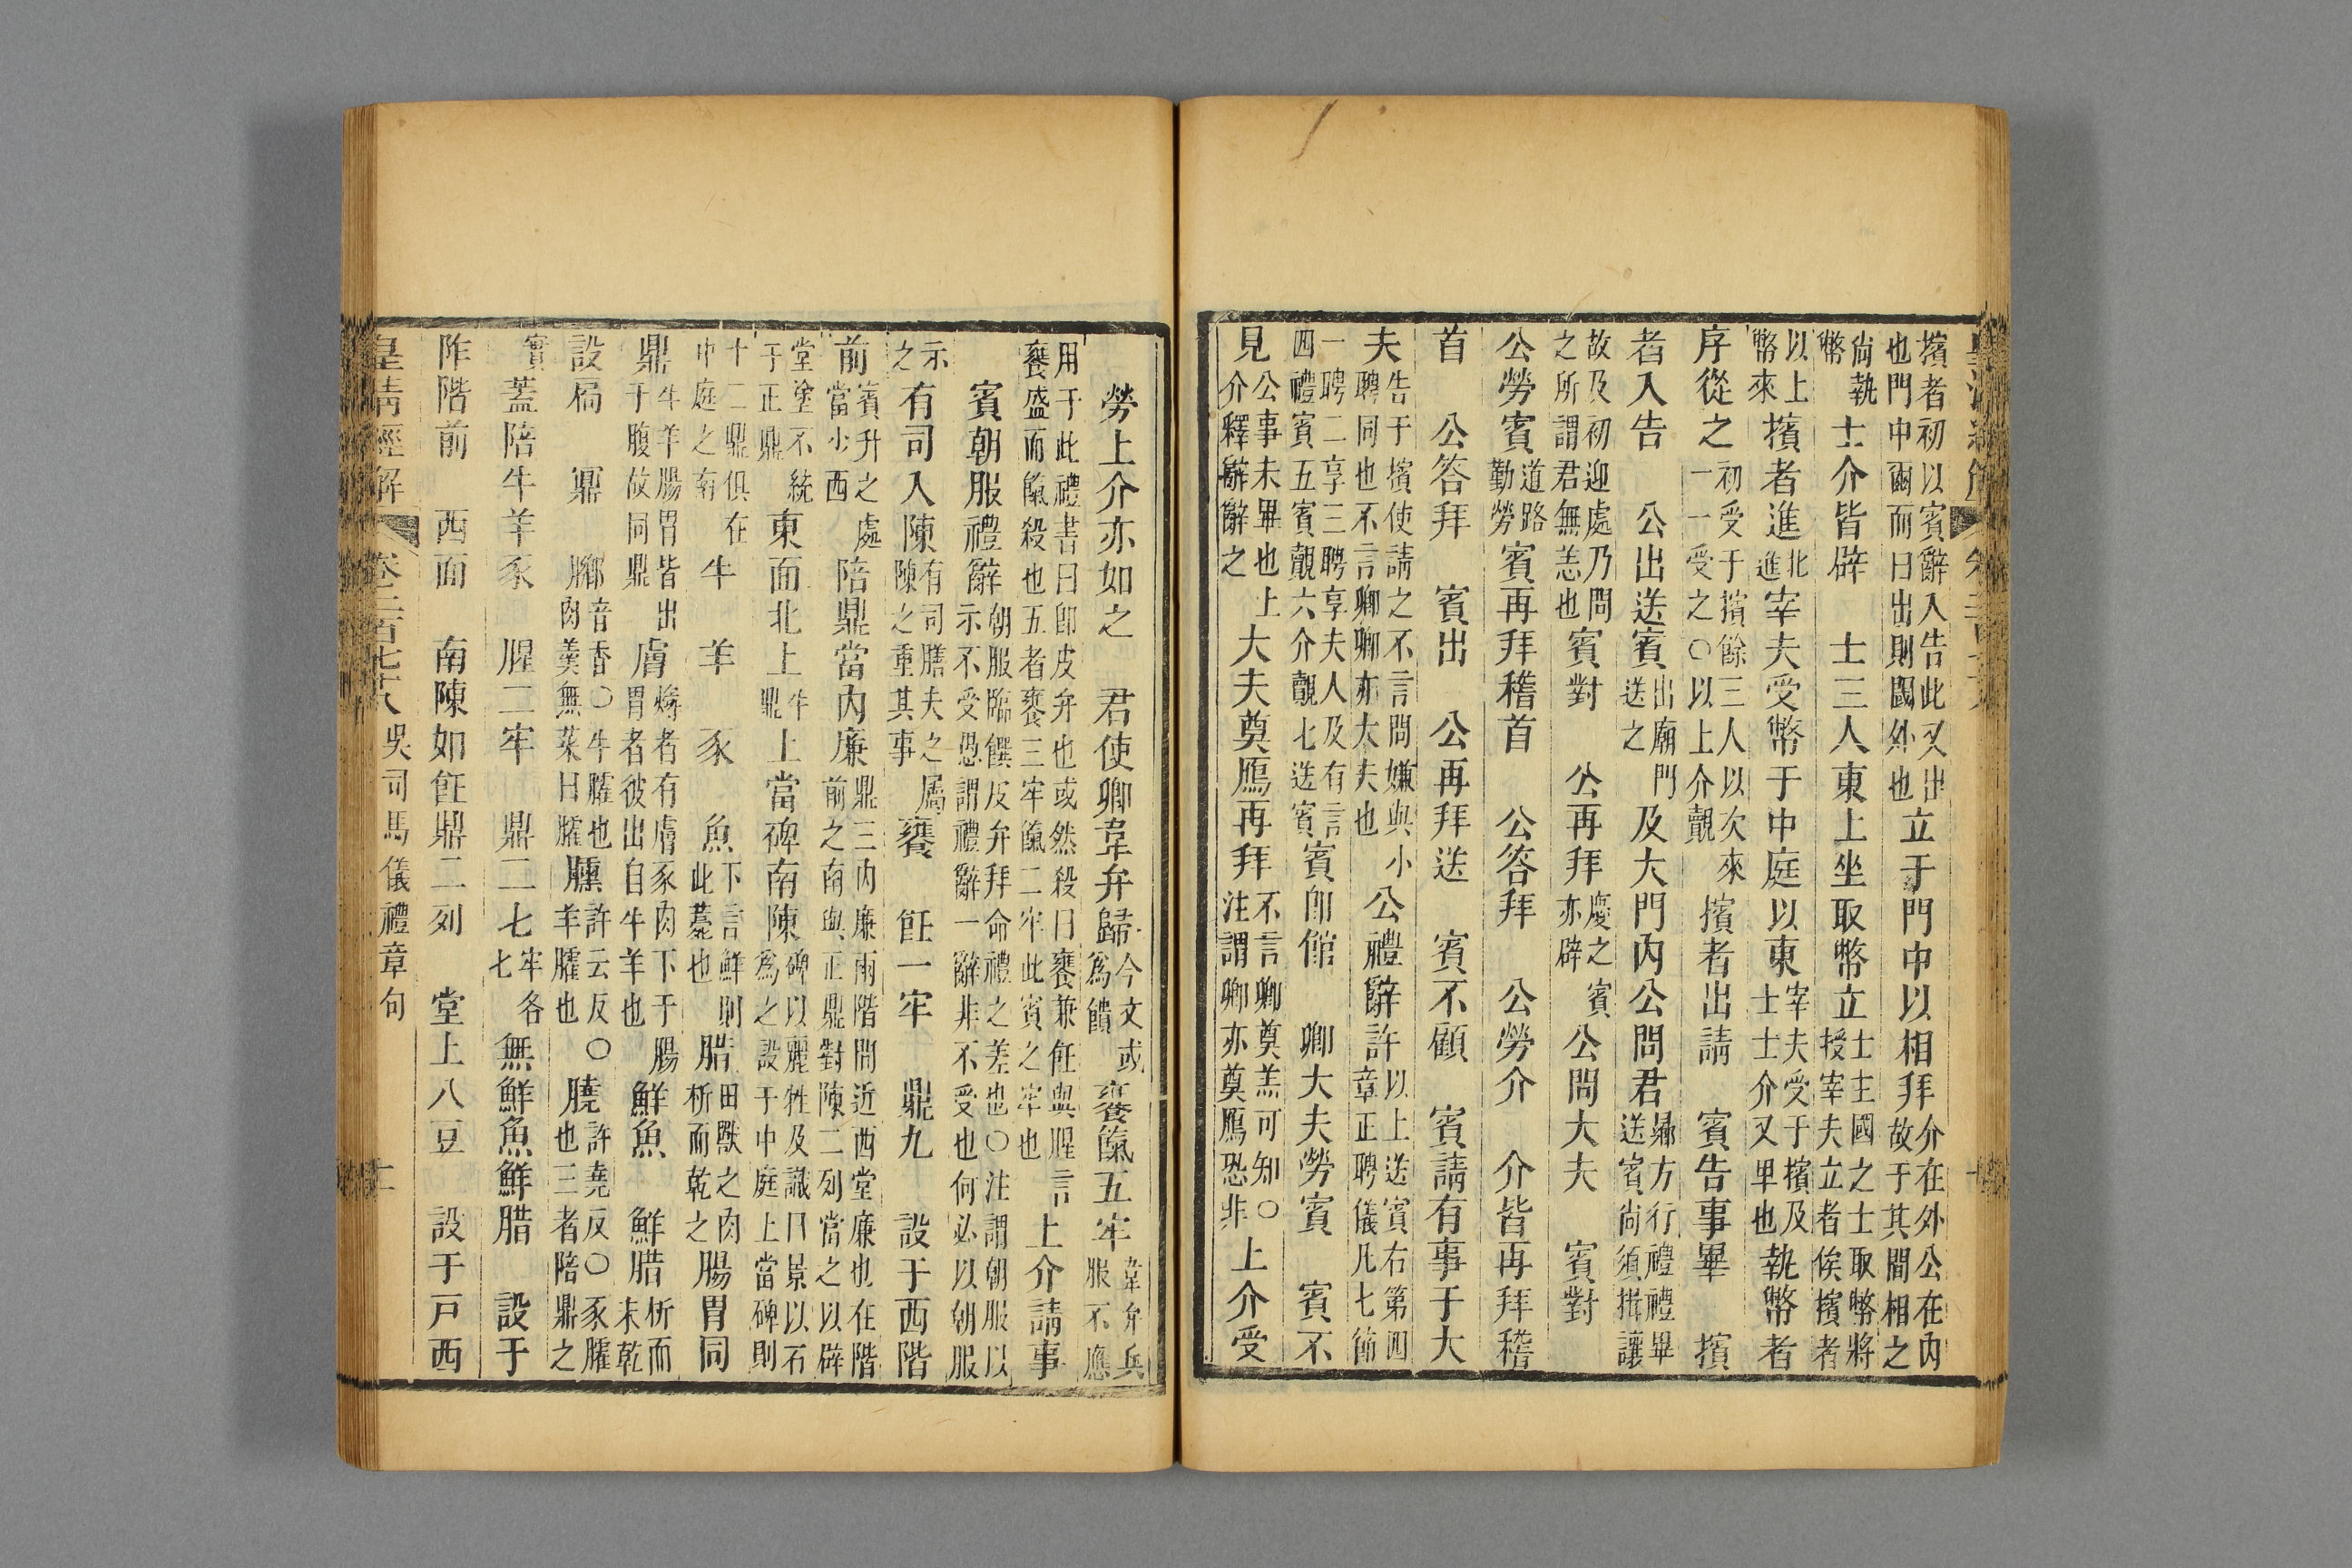 擯者初以賓辭入告此又出也門中爾而曰出則閾外也立于門中以相拜介在外公在內故于其間相之
尙執幣士介皆辟　士三人東上坐取幣立士主國之士取幣將授宰夫立者俟擯者
以上幣來擯者進北進宰夫受幣于中庭以東宰夫受于擯及士士介又卑也執幣者
序從之初受于擯餘三人以次來一一受之○以上介覿擯者出請　賓告事畢　擯
者入告　公出送賓出廟門送之及大門內公問君鄉方行禮禮畢送賓尙須揖讓
故及初迎處乃問之所謂君無恙也賓對　公再拜慶之賓亦辟公問大夫　賓對
公勞賓道路勤勞賓再拜稽首　公答拜　公勞介　介皆再拜稽
首　公答拜　賓出　公再拜送　賓不顧　賓請有事于大
夫告于擯使請之不言問嫌與小聘同也不言卿卿亦大夫也公禮辭許以上送賓右第四章正聘儀凡七節
一聘二享三聘享夫人及有言四禮賓五賓覿六介覿七送賓賓卽館　卿大夫勞賓　賓不
見公事未畢也上介釋辭辭之大夫奠鴈再拜不言卿卿奠羔可知○注謂卿亦奠鴈恐非上介受
勞上介亦如之　君使卿韋弁歸今文或為饋饔餼五牢韋弁兵服不應
用于此禮書曰卽皮弁也或然殺曰饔兼飪與腥言饔盛而餼殺也五者饔三牢餼二牢此賓之牢也上介請事
賓朝服禮辭朝服臨饌皮弁拜命禮之差也○注謂朝服以示不受恐謂禮辭一辭非不受也何必以朝服
示之有司入陳有司膳夫之屬陳之重其事饔　飪一牢　鼎九　設于西階
前賓升之處當少西陪鼎當內廉鼎三內廉兩階間近西堂廉也在階前之南與正鼎對陳二列當之以辟
堂塗不統于正鼎東面北上牛鼎上當碑南陳碑以麗牲及識日景以石為之設于中庭上當碑則
十二鼎俱在中庭之南牛　羊　豕　魚下言鮮則此薧也腊田獸之肉析而乾之腸胃同
鼎牛羊腸胃皆出于腹故同鼎膚燖者有膚豕肉下于腸胃者彼出自牛羊也鮮魚　鮮腊析而未乾
設扃　鼏　膷音香○牛臛也肉羮無菜曰臛臐許云反○羊臛也膮許堯反○豕臛也三者陪鼎之
實蓋陪牛羊豕　腥二牢　鼎二七牢各七無鮮魚鮮腊　設于
阼階前　西面　南陳如飪鼎二列　堂上八豆　設于戸西
皇清經解　卷二百七十八　吳司馬儀禮章句